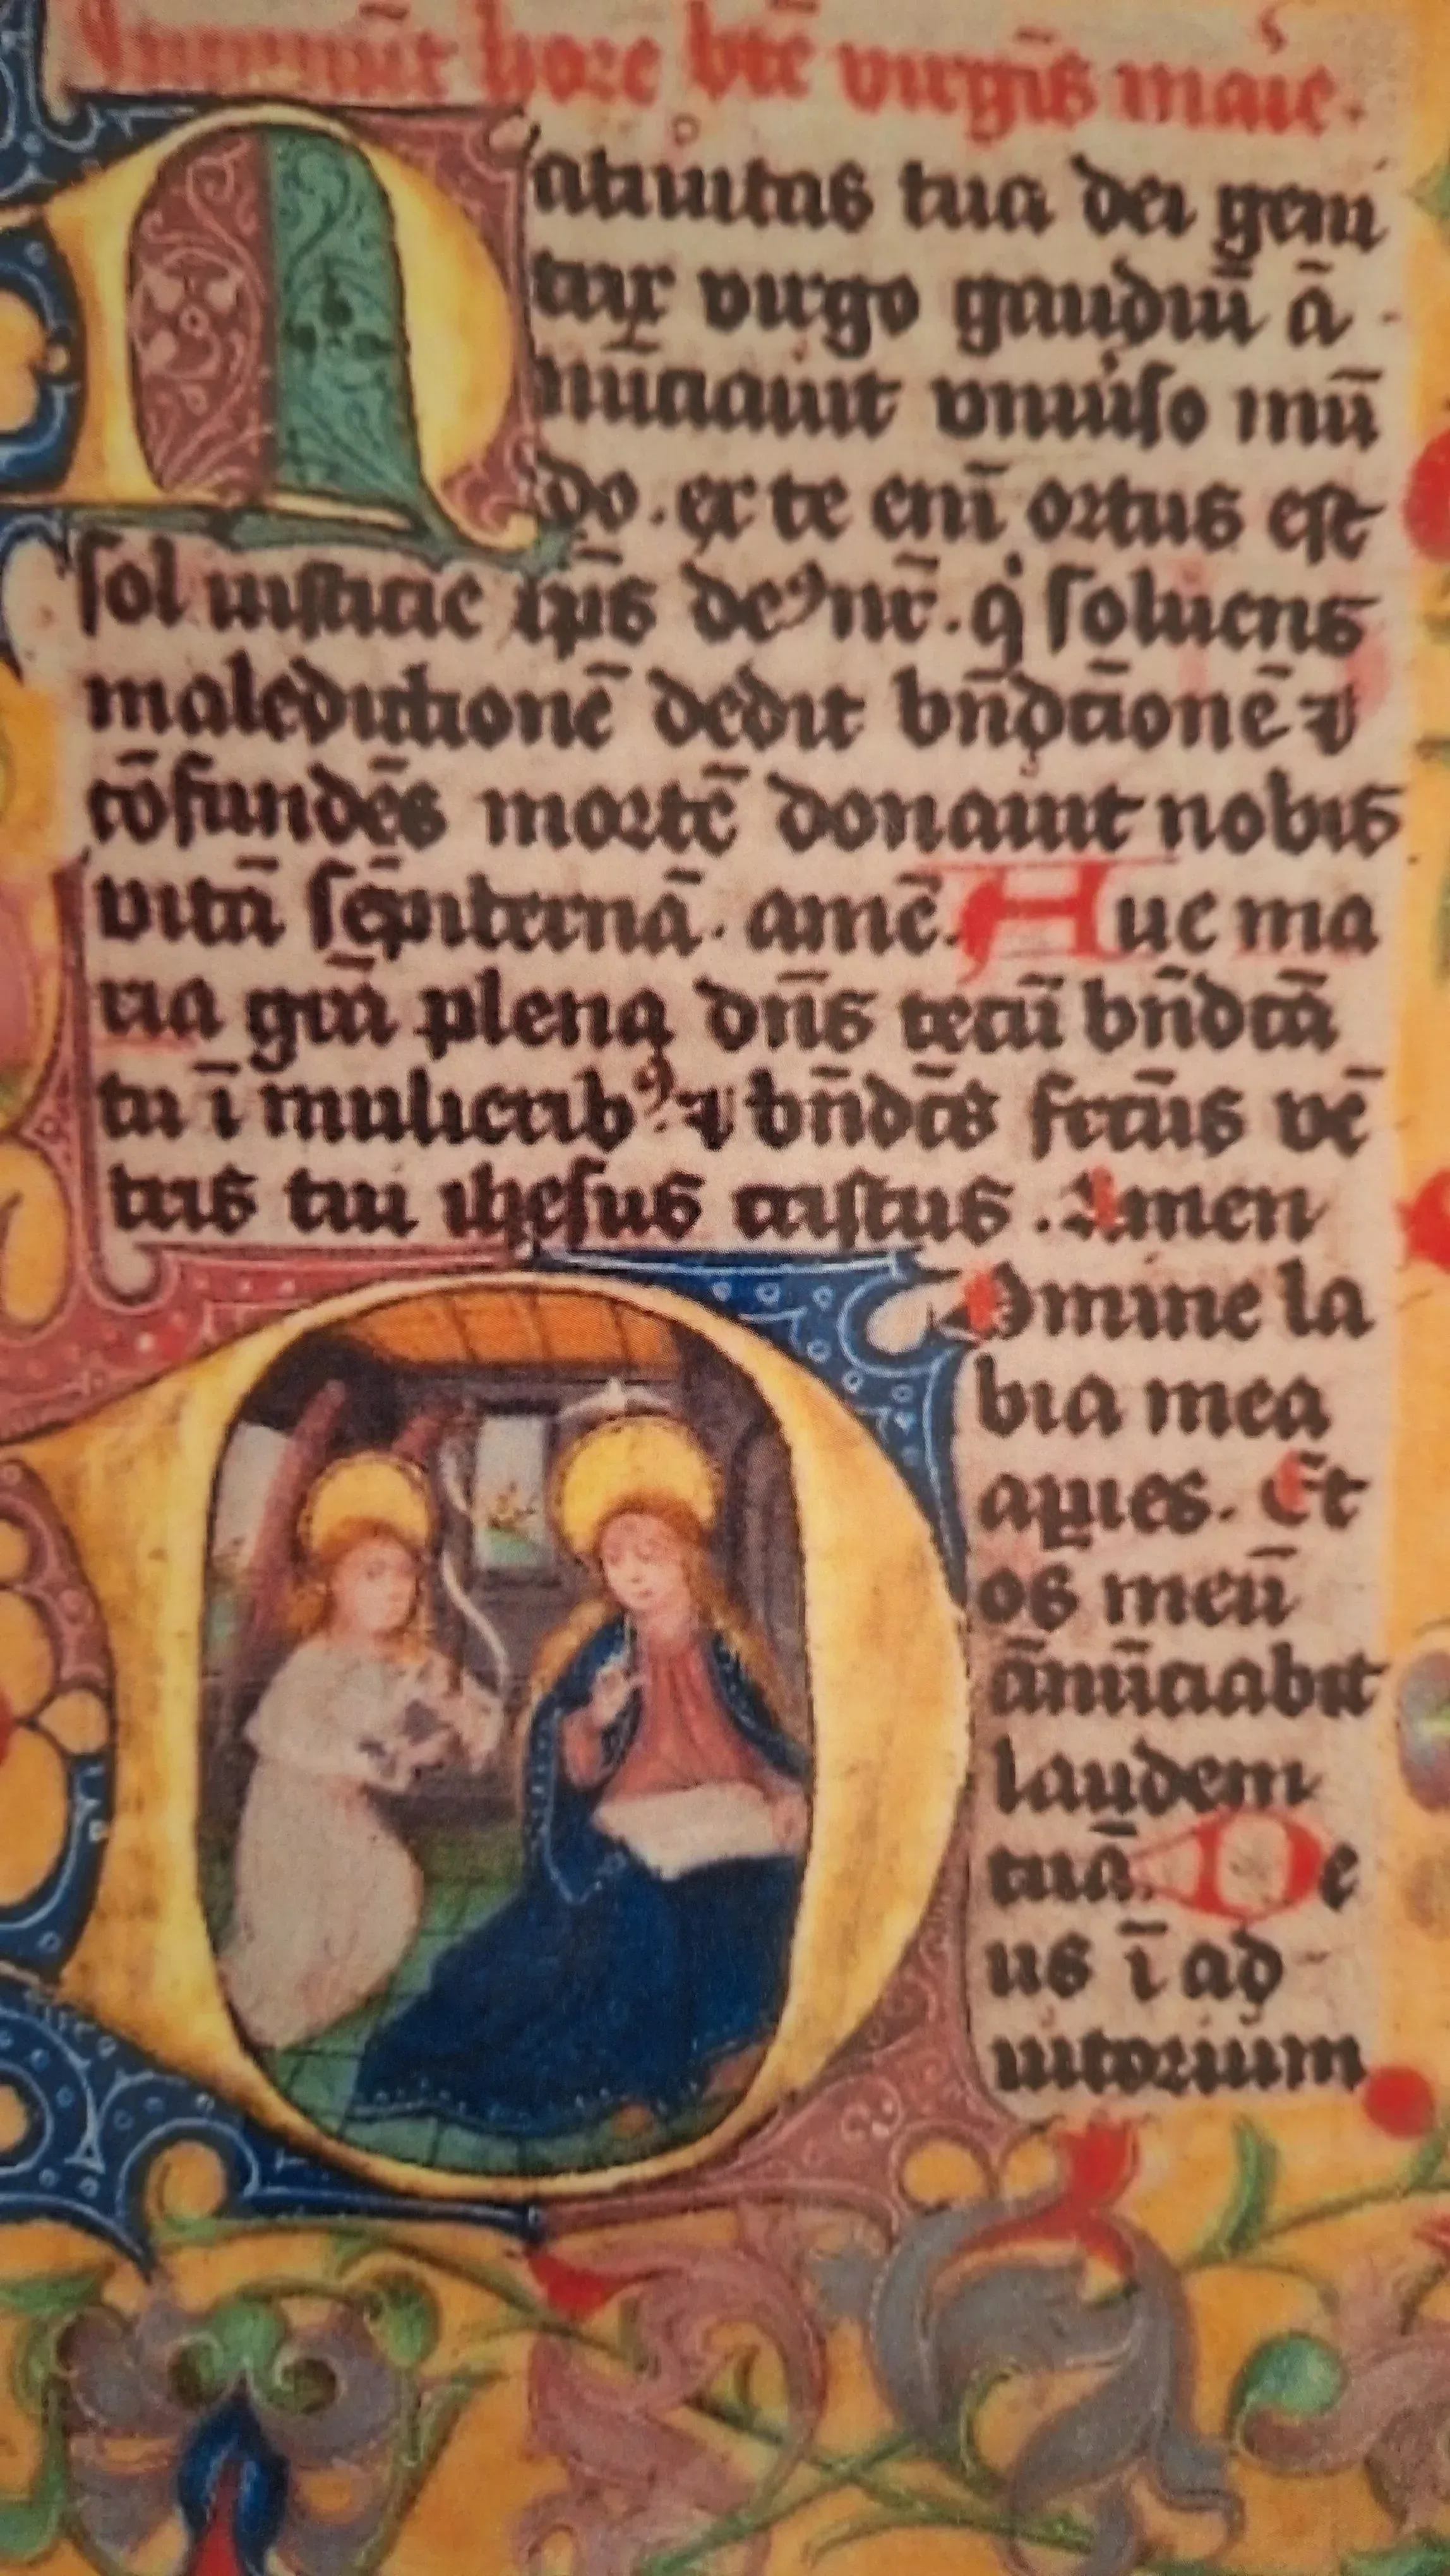 Incipiūt hore btē virgīs marie.
Natiuitas tua dei geni
trix virgo gaudiū ā
nūciauit vniuso mū
do. ex te enī ortus est
sol iusticie xp̄s deꝰ nr̄. q soluens
maledictionē dedit bn̄dcāonē ⁊
cōfundēs mortē donauit nobis
vitā sēpiternā. amē. Aue ma
ria grā plena dn̄s tecū bn̄dcā
tu ī mulieribꝰ ⁊ bn̄dcs̄ frcūs vē
tris tui ihesus cristus. Amen
Domine la
bia mea
apies. Et
os meū
ānūciabit
laudem
tuā. De
us ī ad
iutorium